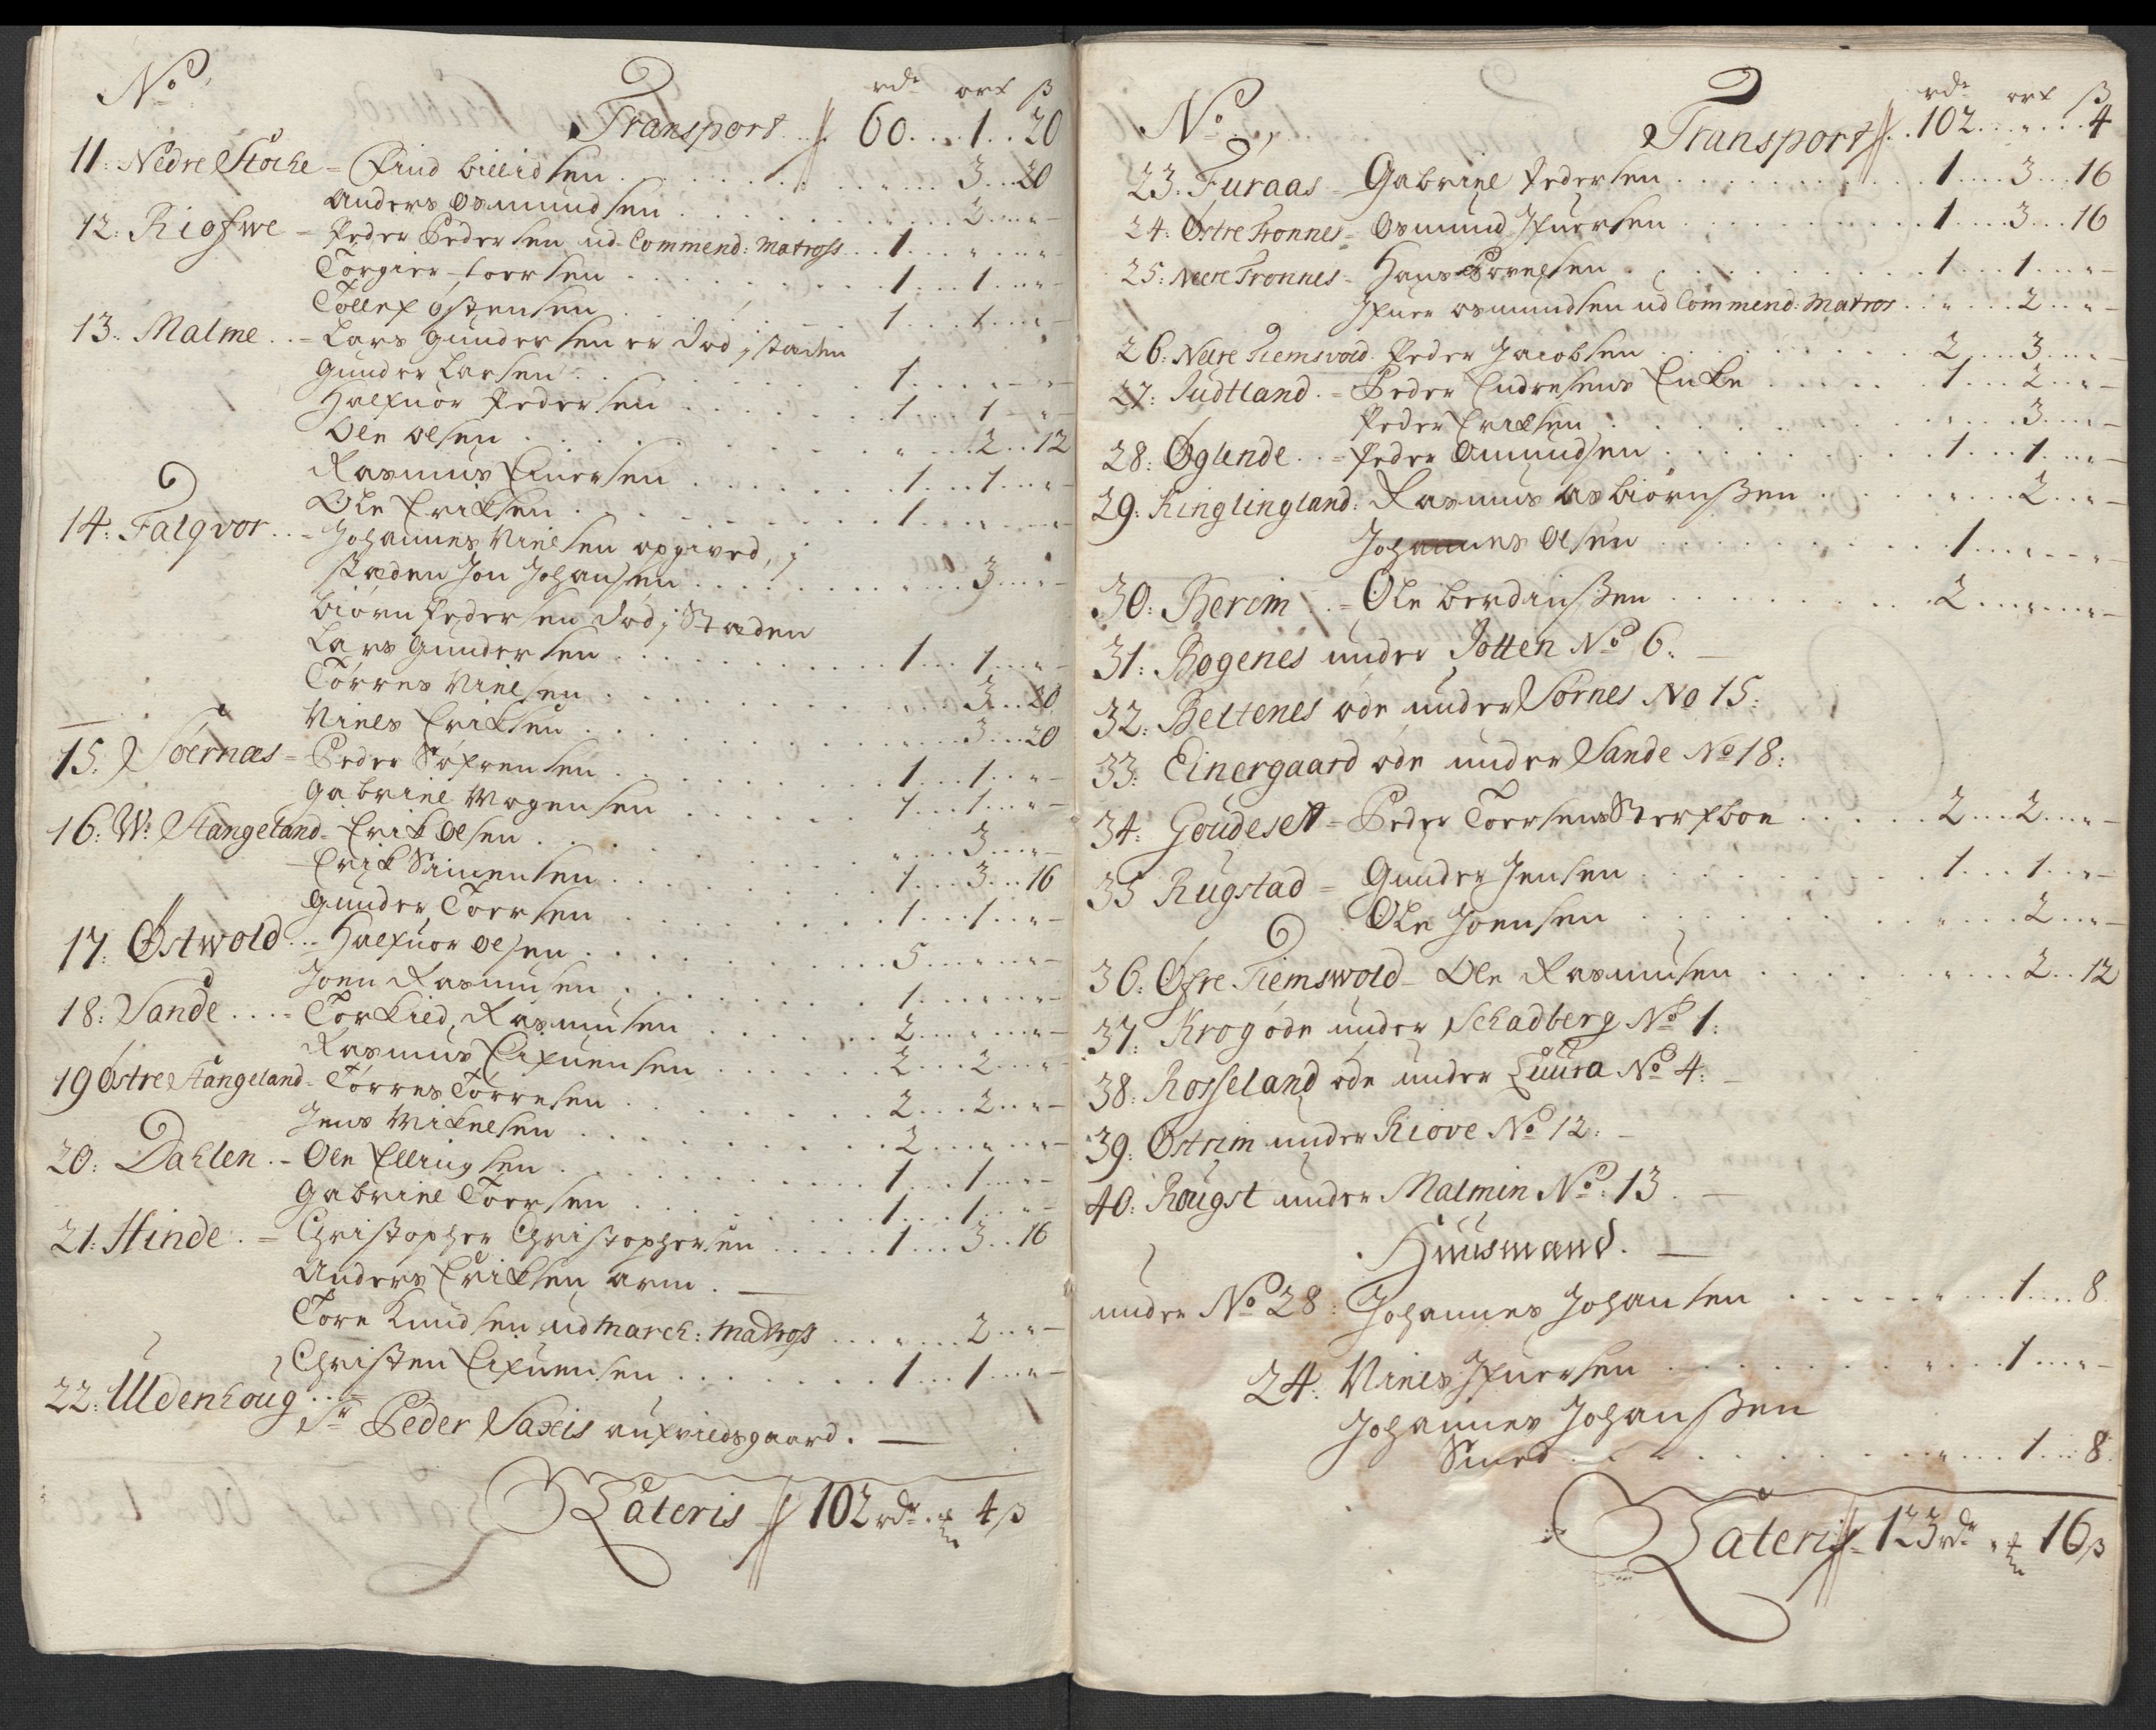 No rdr ort ß
Transport 60 1 20
11: Nedre Stoche = Find Eilidsen " 3 20
Anders Osmundsen " 2 " -
12: Riofwe = Peder Pedersen ud Commend: Matross 1 " " -
Torgier Torrsen 1 1 " -
Tollef Ostensen 1 1 " -
13: Malme = Lars Gundersen er død, j staden
Gunder Larsen 1 " " -
Halfuor Pedersen 1 1 " -
Ole Olsen " 2 12
Rasmus Einersen 1 1 " -
Ole Eriksen 1 " " -
14: Falqvor = Johannes Nielsen opgived, j
staden Jon Johansen " 3 " -
Biørn Pedersen død, j Staden
Lars Gundersen 1 1 " -
Torres Nielsen " 3 20
Niels Eriksen " 3 20
15: Soernæs = Peder Søfrensen 1 1 " -
Gabriel Mogensen 1 1 " -
16: W: Stangeland = Erik Olsen " 3 " -
Erik Simensen 1 3 16
Gunder Torrsen 1 1 " -
17: Østwold = Halfuor Olsen 5 " " -
Joen Rasmusen 1 " " -
18: Sande = Torkied Rasmusen 2 " " -
Rasmus Eifuensen 2 2 " -
19 Østre Stangeland = Torres Torresen 2 2 " -
Jens Mikelsen 2 " " -
20: Dahlen = Ole Ellingsen 1 1 " -
Gabriel Toersen 1 1 " -
21: Hinde = Christopher Christophersen 1 3 16
Anders Eriksen arm. —
Tore Knudsen ud March: Matross " 2 " -
Christen Eifuensen 1 1 " -
22: Udenhoug =
Sr Peder Saxis aufvielsgaard. —
Lateris 102 rdr " 4 ß
No rdr ort ß
Transport 102 " 4
23: Furaas = Gabriel Pedersen 1 3 16
24: Østre Tronnes = Osmund Jfuersen 1 3 16
25: Neere Tronnes = Hans Povelsen 1 1 " -
Jfuer Osmundsen ud Commend: Matros " 2 " -
26: Nedre Tiemsvold. Peder Jacobsen 2 3 " -
27: Judtland = Peder Endresens Enke 1 2 " -
Peder Eriksen " 3 " -
28: Øglende = Peder Omundsen 1 1 " -
29: Kinglingland: Rasmus Asbiørnßen " 2 " -
Johannes Olsen 1 " " -
30: Berim = Ole Berdinßen 2 " " -
31: Bogenes under Jotten No 6. —
32: Beltenes øde under Sørnes No 15:
33: Einergaard øde under Sande No 18:
34: Goudeset = Peder Toersens Sterfboe 2 2 " -
35 Rugstad = Gunder Jensen 1 1 " -
Ole Joensen " 2 " -
36: Øfre Tiemswold - Ole Rasmusen " 2 12
37: Krog øde under Schadberg No 1:
38: Rosseland øde under Luura No 4: -
39: Østrim under Riove No 12: -
40: Rougst under Malmin No: 13. —
Huusmænd. —
under No 28: Johannes Johansen " 1 8
24: Niels Jfuersen " 1 " -
Johannes Johanßen
Smed " 1 8
Lateris 123 rdr " 16 ß